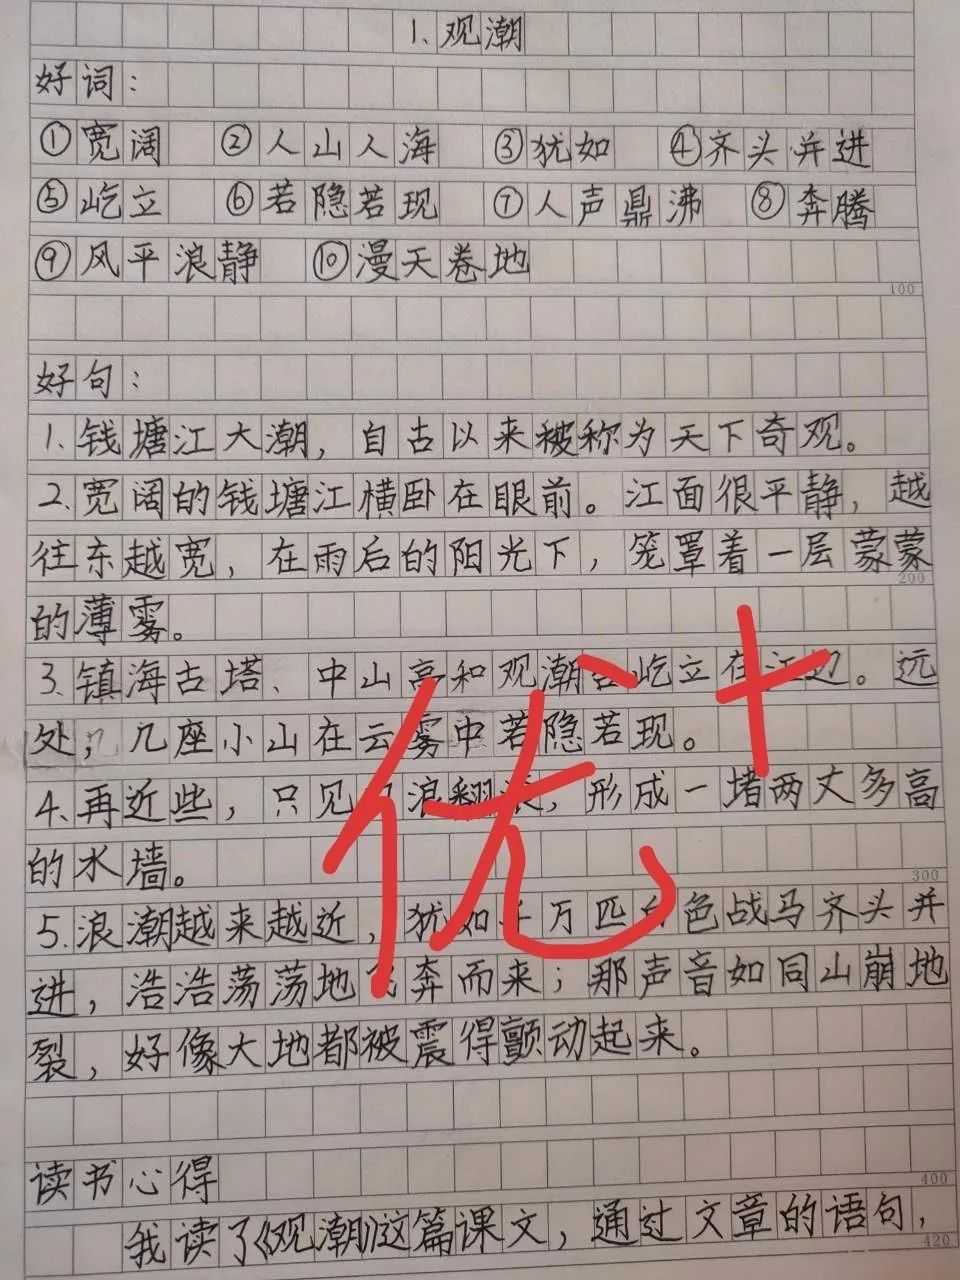 1.观潮
好词：
①宽阔 ②人山人海 ③犹如 ④齐头并进
⑤屹立 ⑥若隐若现 ⑦人声鼎沸 ⑧奔腾
⑨风平浪静 ⑩漫天卷地
100
好句：
1.钱塘江大潮，自古以来被称为天下奇观。
2.宽阔的钱塘江横卧在眼前。江面很平静，越
往东越宽，在雨后的阳光下，笼罩着一层蒙蒙
200
的薄雾。
3.镇海古塔、中山亭和观潮台屹立在江边。远
处，几座小山在云雾中若隐若现。
4.再近些，只见 浪翻滚，形成一堵两丈多高
的水墙。
300
5.浪潮越来越近，犹如千万匹白色战马齐头并
进，浩浩荡荡地飞奔而来；那声音如同山崩地
裂，好像大地都被震得颤动起来。
读书心得
400
我读了《观潮》这篇课文，通过文章的语句，
420
优+